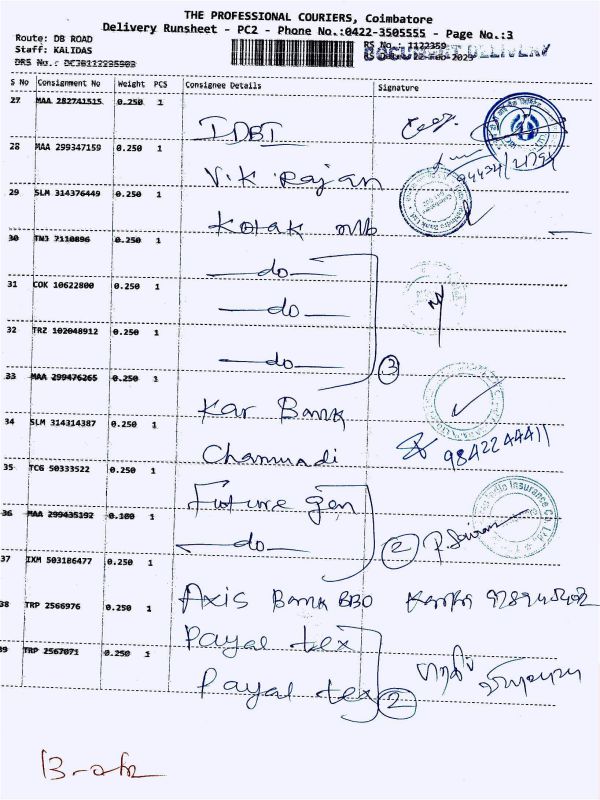 THE PROFESSIONAL COURIERS, Coimbatore
Delivery Runsheet - PC2 - Phone No.:0422-3505555 - Page No.:3
Route: DB ROAD
Staff: KALIDAS
RS No.: 1122359
DOCUMENT DELIVERY
S No Consignment No Weight PCS Consignee Details Signature
27 MAA 282741515 0.250 1 IDBI
28 MAA 299347159 0.250 1 Vik Rajan
29 SLM 314376449 0.250 1 Kotak
30 TNJ 7110896 0.250 1 do
31 COK 10622800 0.250 1 do
32 TRZ 102048912 0.250 1 do 3
33 MAA 299476265 0.250 1 Kar Bank
34 SLM 314314387 0.250 1 Chamundi 9842244411
35 TCG 50333522 0.250 1 Future gen
36 MAA 299435192 0.100 1 do 2
37 IXM 503186477 0.250 1 Axis Bank BBO
38 TRP 2566976 0.250 1 Payal tex
39 TRP 2567071 0.250 1 Payal tex 2